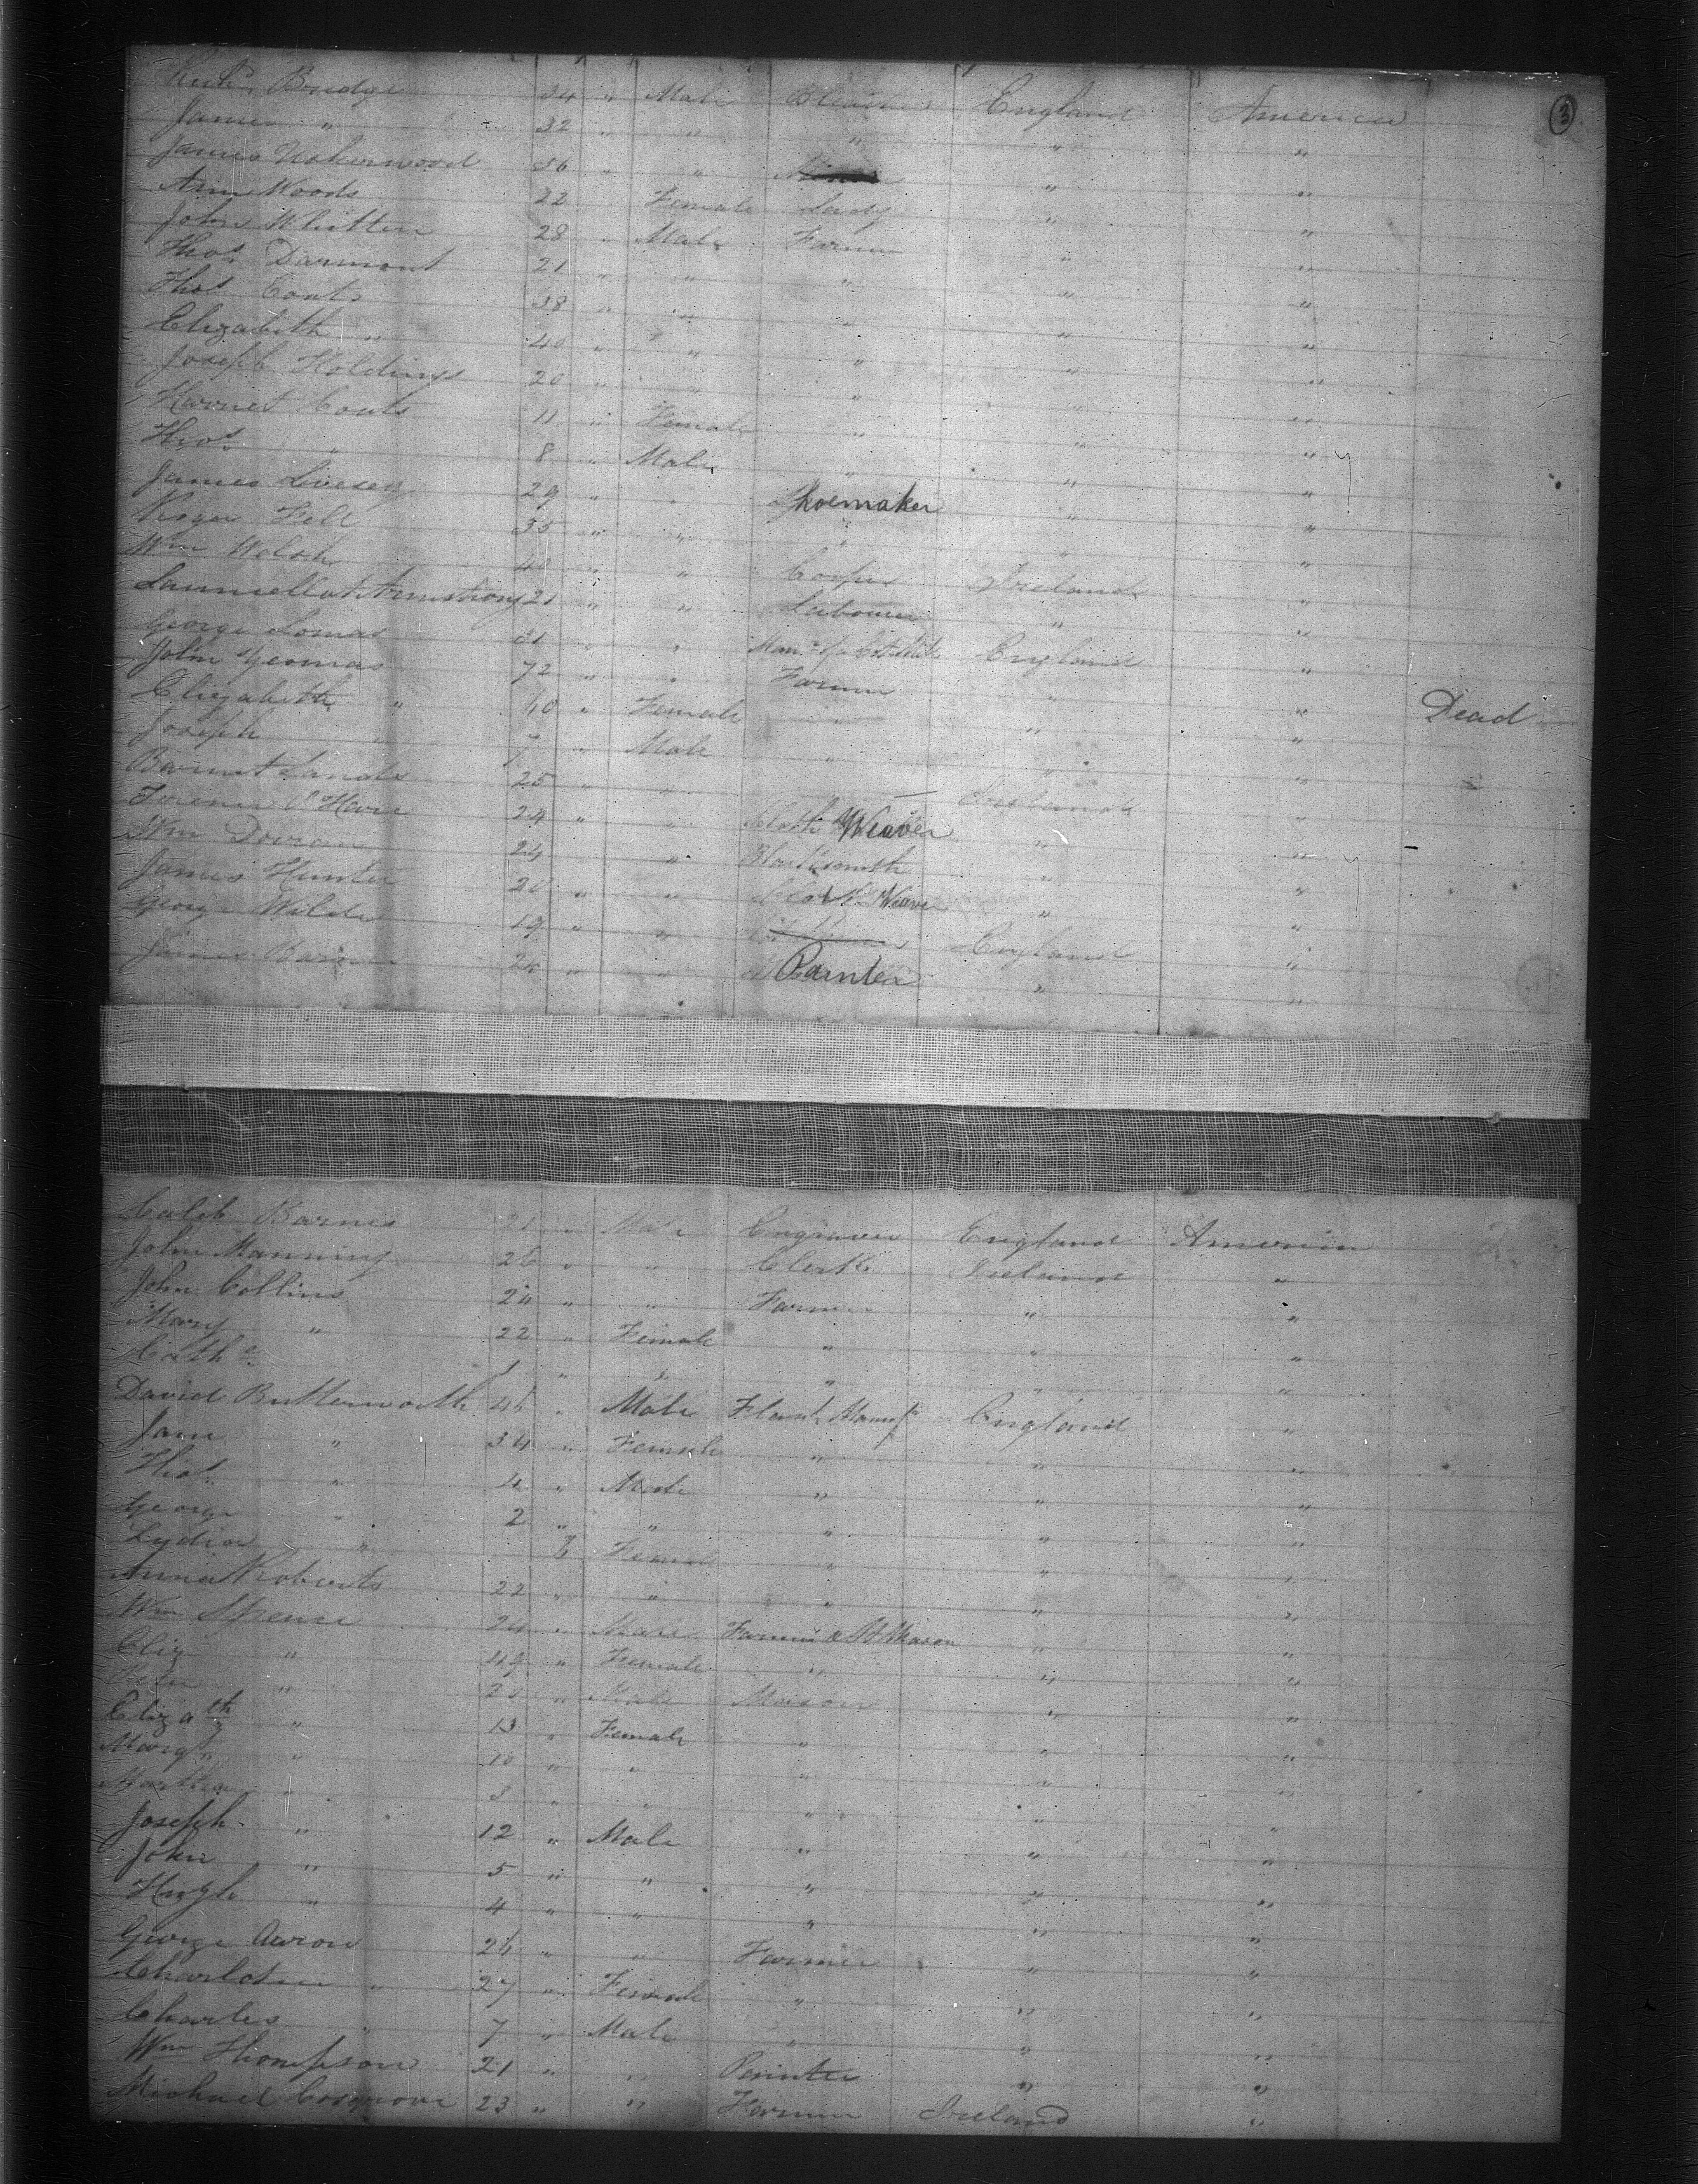 3
Richd. Bridge 34 " Male England America
James " 32 " " " " "
James Usherwood 36 " " " "
Ann Woods 22 Female Lady " "
John Whitten 28 " Male Farmer " "
Thos. Darmont 21 " " " " "
Thos Couts 38 " " " " "
Elizabeth " 40 " " " " "
Joseph Holdings 20 " " " " "
Harriet Couts 11 " Female " " "
Thos. " 8 " Male " " "
James Livesey 29 " " Shoemaker " "
Roger Fell 35 " " " " "
Wm Welsh 40 " " Cooper Ireland "
Armstrong 21 " " Labourer " "
George Lomas 31 " " England "
John Yeomas 72 " " Farmer " "
Elizabeth " 40 " Female " " " Dead
Joseph " 7 " Male " " "
Barnet Sands 25 " " — Ireland "
O'Hare 24 " " Cloth Weaver " "
Wm Doran 24 " Blacksmith " "
James Hunter 20 " " Cloth Weaver " "
George Wilde 19 " " England "
James 24 " " Painter " "
2
Caleb Barnes 21 " Male Engraver England America
John Manning 26 " " Clerk Ireland "
John Collins 24 " " Farmer " "
Mary " 22 " Female " " "
Cathe. 1 " " " " "
David Butterworth 46 " Male Flanl. Manufr England "
Jane " 34 " Female " " "
Thos. " 4 " Male " " "
George " 2 " " " " "
Lydia " Female " " "
Anna Roberts 22 " " " " "
Wm Spence 24 " Male Farmer & St Mason " "
Eliz " 49 " Female " " "
" 21 " Male Mason " "
Elizath " 13 " Female " " "
Margt. " 10 " " " " "
Martha " 8 " " " " "
Joseph " 12 " Male " " "
John " 5 " " " " "
Hugh " 4 " " " " "
George Aaron 26 " " Farmer " "
Charlotte " 27 " Female " " "
Charles " 7 " Male " " "
Wm Thompson 21 " " Painter " "
Michael Cosgrove 23 " " Farmer Ireland "